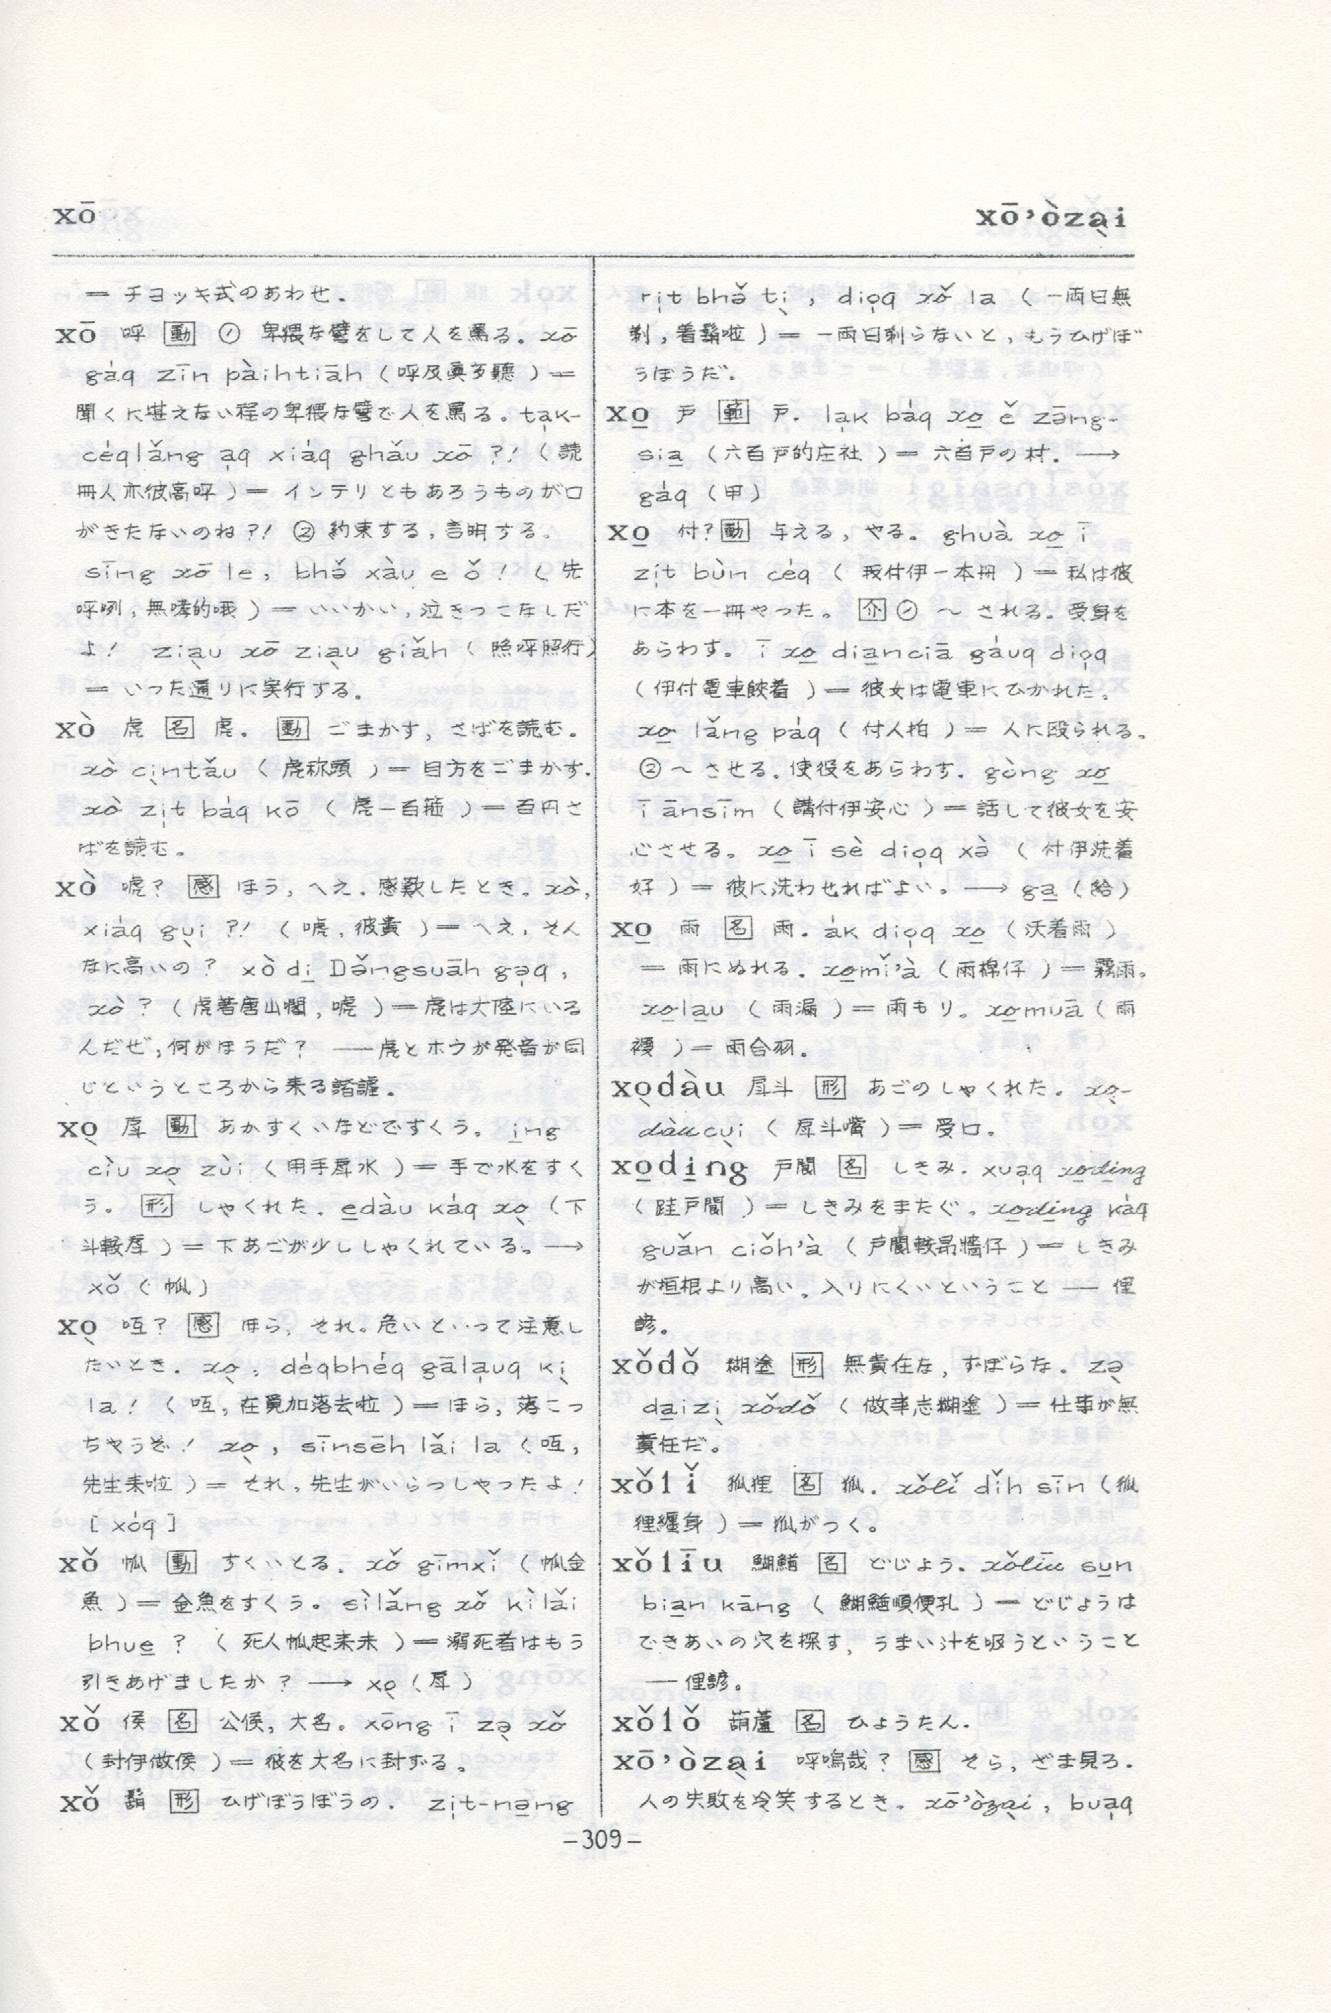 xō
xō'òzại
＝ チョッキ式のあわせ．
xō 呼 動 ① 卑猥な聲をして人を罵る．xō
gáq zīn pàihtiāh（呼及眞歹聽）＝
聞くに堪えない程の卑猥な聲で人を罵る．tạk-
céqlǎng ạq xiáq ghǎu xō ?!（読
冊人亦彼高呼）＝ インテリともあろうものが口
がきたないのね?! ② 約束する，言明する．
sīng xō le, bhə̌ xàu e ǒ !（先
呼咧，無哮的哦）＝ いいかい，泣きっこなしだ
よ! ziạu xō ziạu giǎh（照呼照行）
＝ いった通りに実行する．
xò 虎 名 虎． 動 ごまかす，さばを読む．
xò cịntǎu（虎称頭）＝ 目方をごまかす．
xò zịt báq kō（虎一百箍）＝ 百円さ
ばを読む．
xò 唬? 感 ほう，へえ．感歎したとき．xò,
xiáq gụi ?!（唬，彼貴）＝ へえ，そん
なに高いの? xò dị Dǎngsuāh gəq,
xò ?（虎著唐山閣，唬）＝ 虎は大陸にいる
んだぜ，何がほうだ? ──虎とホウが発音が同
じというところから来る諧謔．
xọ 戽 動 あかすくいなどですくう．i̲ng
cìu xọ zùi（用手戽水）＝ 手で水をすく
う． 形 しゃくれた．e̲dàu káq xọ（下
斗較戽）＝ 下あごが少ししゃくれている．─→
xǒ（㧾）
xọ 㗅? 感 ほら，それ．危いといって注意し
たいとき．xọ, déqbhéq gālạuq kị
la !（㗅，在覓加落去啦）＝ ほら，落こっ
ちゃうぞ! xọ, sīnseh lǎi la（㗅，
先生来啦）＝ それ，先生がいらっしゃったよ!
[xóq]
xǒ 動 すくいとる．xǒ gīmxǐ（金
魚）＝ 金魚をすくう．sìlǎng xǒ kìlǎi
bhue̲ ?（死人起来未）＝ 溺死者はもう
引きあげましたか? ─→ xọ（戽）
xǒ 侯 名 公侯，大名．xōng ī zə xǒ
（封伊做侯）＝ 彼を大名に封ずる．
xǒ 鬍 形 ひげぼうぼうの． zịt-nə̲ng
rịt bhə̌ tị, diọq xǒ la（一両日無
剃，着鬍啦）＝ 一両日剃らないと，もうひげぼ
うぼうだ．
xo̲ 戸 範 戸．lạk báq xo̲ ě zāng-
sia̲（六百戸的庄社）＝ 六百戸の村．─→
gáq（甲）
xo̲ 付? 動 与える，やる．ghuà xo̲ ī
zịt bùn céq（我付伊一本冊）＝ 私は彼
に本を一冊やった． 介 ① ～される．受身を
あらわす．ī xo̲ dia̲nciā gáuq diọq
（伊付電車餃着）＝ 彼女は電車にひかれた．
xo̲ lǎng páq（付人拍）＝ 人に殴られる．
② ～させる．使役をあらわす．gòng xo̲
ī ānsīm（講付伊安心）＝ 話して彼女を安
心させる．xo̲ ī sè diọq xə̀（付伊洗着
好）＝ 彼に洗わせればよい．─→ ga̲（給）
xo̲ 雨 名 雨．ák diọq xo̲（沃着雨）
＝ 雨にぬれる．xo̲mǐ'à（雨棉仔）＝ 霧雨．
xo̲la̲u（雨漏）＝ 雨もり．xo̲muā（雨
幔）＝ 雨合羽．
xọdàu 戽斗 形 あごのしゃくれた．xọ-
dàucụi（戽斗嘴）＝ 受口．
xo̲di̲ng 戸閾 名 しきみ．xuạq xo̲di̲ng
（跬戸閾）＝ しきみをまたぐ．xo̲di̲ng káq
guǎn ciǒh'à（戸閾較昂牆仔）＝ しきみ
が垣根より高い．入りにくいということ ── 俚
諺．
xǒdǒ 糊塗 形 無責任な，ずぼらな．zə
da̲izị xǒdǒ（做事志糊塗）＝ 仕事が無
責任だ．
xǒlǐ 狐狸 名 狐．xǒlǐ dǐh sīn（狐
狸纒身）＝ 狐がつく．
xǒlīu 鰗鰌 名 どじょう．xǒlīu su̲n
bia̲n kāng（鰗鰌順便孔）＝ どじょうは
できあいの穴を探す，うまい汁を吸うということ
── 俚諺．
xǒlǒ 葫蘆 名 ひょうたん．
xō'òzại 呼嗚哉? 感 そら，ざま見ろ．
人の失敗を冷笑するとき．xō'òzại, buạq
-309-